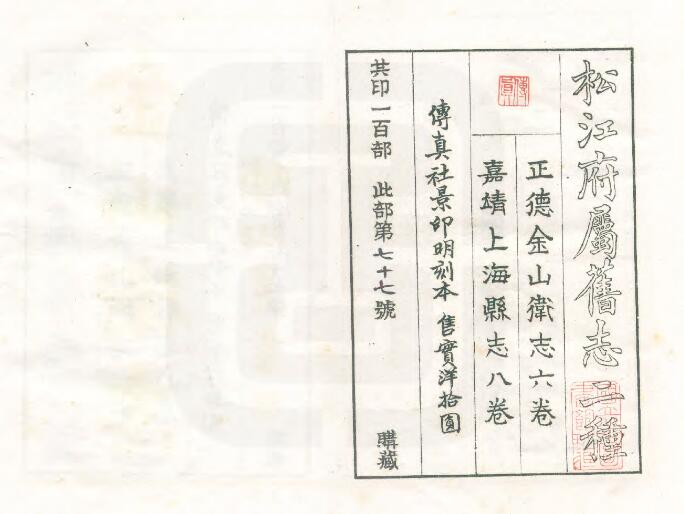 松江府屬舊志二種
正德金山衛志六卷
嘉靖上海縣志八卷
傳真
傳真社景印明刻本 售實洋拾圓
共印一百部 此部第七十七號 購藏